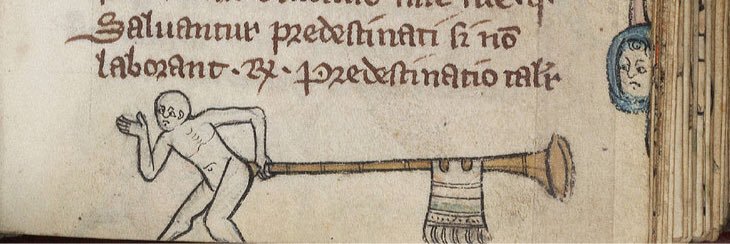 Saluantur predestinati si nō
laborant · R̷ · Predestinatio talr̄